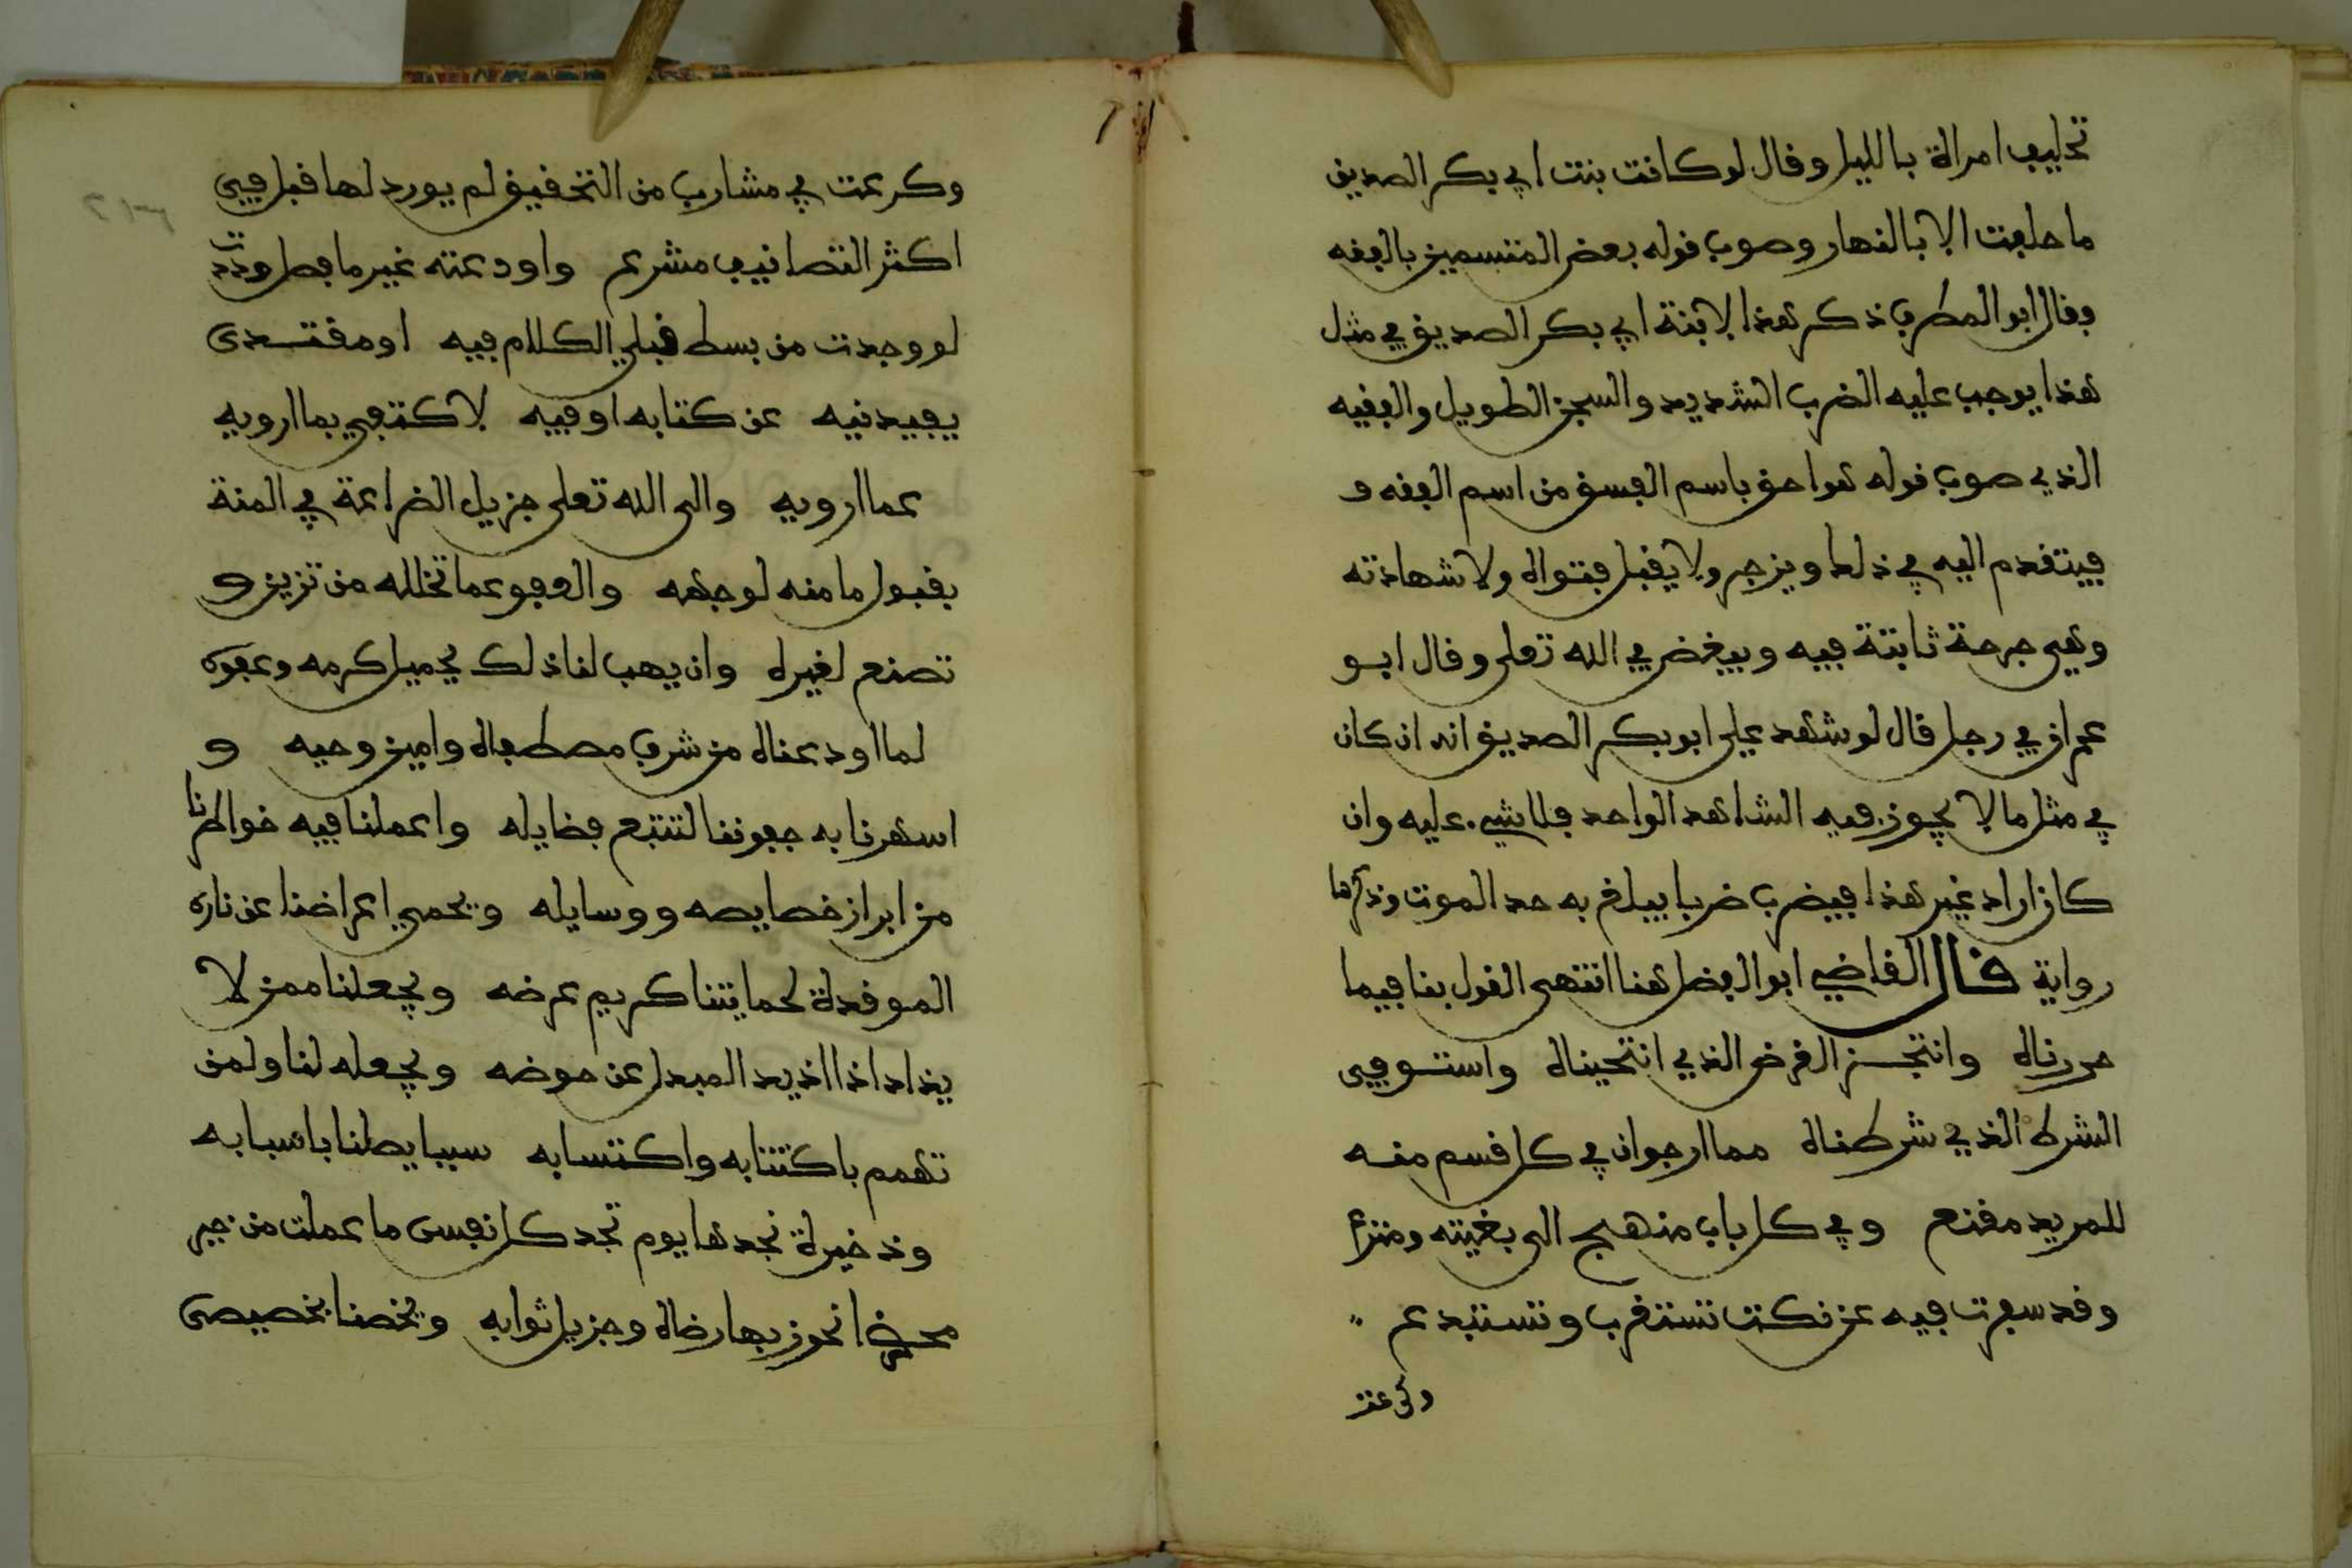 تحليف امراة بالليل وقال لو كانت بنت ابي بكر الصديق
ما حلفت الا بالنهار وصوب قوله بعض المتسمين بالفقه
فقال ابو المطرف ذكر هذا لابنة ابي بكر الصديق في مثل
هذا يوجب عليه الضرب الشديد والسجن الطويل والفقيه
الذي صوب قوله هو احق باسم الفسق من اسم الفقه و
فيتقدم اليه في ذلك ويزجر ولا يقبل فتواه ولا شهادته
وهي جرحة ثابتة فيه ويبغض في الله تعلى وقال ابو
عمران في رجل قال لو شهد علي ابو بكر الصديق انه ان كان
في مثل ما لا يجوز فيه الشاهد الواحد فلا شيء عليه وان
كان اراد غير هذا فيضرب ضربا يبلغ به حد الموت وذكرها
رواية قال القاضي ابو الفضل هنا انتهى القول بنا فيما
حررناه وانتجز الغرض الذي انتحيناه واستوفي
الشرط الذي شرطناه مما ارجو ان في كل قسم منه
للمريد مقنع وفي كل باب منهج الى بغيته ومنزع
وقد سفرت فيه عن نكت تستغرب وتستبدع
وكرعت
وكرعت في مشارب من التحقيق لم يورد لها قبل في
اكثر التصانيف مشرع واودعته غير ما فصل وددت
لو وجدت من بسط قبلي الكلام فيه او مقتدى
يفيدنيه عن كتابه او فيه لاكتفي بما ارويه
عما ارويه والى الله تعلى جزيل الضراعة في المنة
بقبول ما منه لوجهه والعفو عما تخلله من تزين و
تصنع لغيره وان يهب لنا ذلك بجميل كرمه وعفوه
لما اودعناه من شرف مصطفاه وامين وحيه و
اسهرنا به جفوننا لتتبع فضايله واعملنا فيه خواطرنا
من ابراز خصايصه ووسايله ويحمي اعراضنا عن ناره
الموقدة لحمايتنا كريم عرضه ويجعلنا ممن لا
يذاد اذا اذيد المبدل عن حوضه ويجعله لنا ولمن
تهمم باكتتابه واكتسابه سببا يصلنا باسبابه
وذخيرة نجدها يوم تجد كل نفس ما عملت من خير
محضرا نحوز بها رضاه وجزيل ثوابه ويخصنا بخصيصى